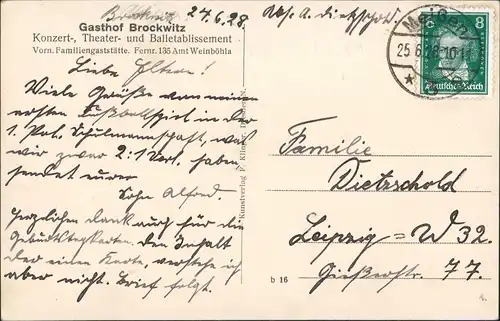 Brockwitz 24.6.28.
Gasthof Brockwitz
Konzert-, Theater- und Balletablissement
Vorn. Familiengaststätte. Fernr. 135 Amt Weinböhla
Liebe Eltern!
Viele Grüße von meinem
ersten Fußballspiel in der
1. Pol. Schulmannschaft, was
wir zwar 2:1 verl. haben
sendet eurer
Sohn Alfred.
Herzlichen dank auch für die
Geburtstagskarten. Den Inhalt
der einen Karte, verstehe ich
aber nicht. Brief folgt.
Kunstverlag
Abs. A. Dietzschold
Meißen
25.6.28. 10-11
8
Deutsches Reich
Familie
Dietzschold
Leipzig = W 32.
Gießerstr. 77.
b 16